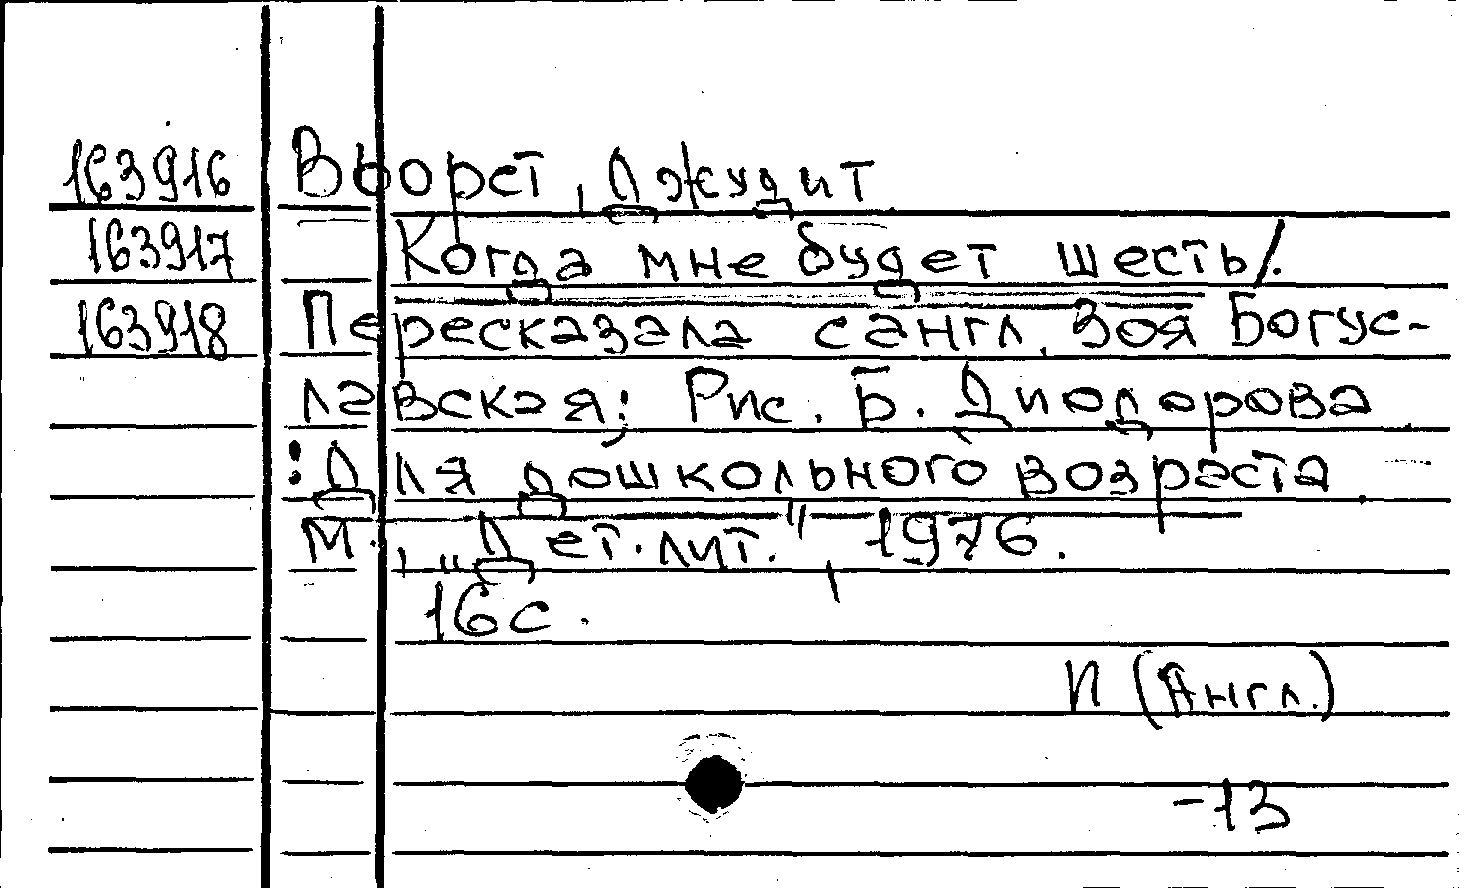 163916 Вьорст, Джудит
163917 Когда мне будет шесть/.
163918 Пересказала с англ. Зоя Богус-
лавская; Рис. Б. Диодорова
: Для дошкольного возраста.
М., „Дет. лит.", 1976.
16с.
И (Англ.)
-13